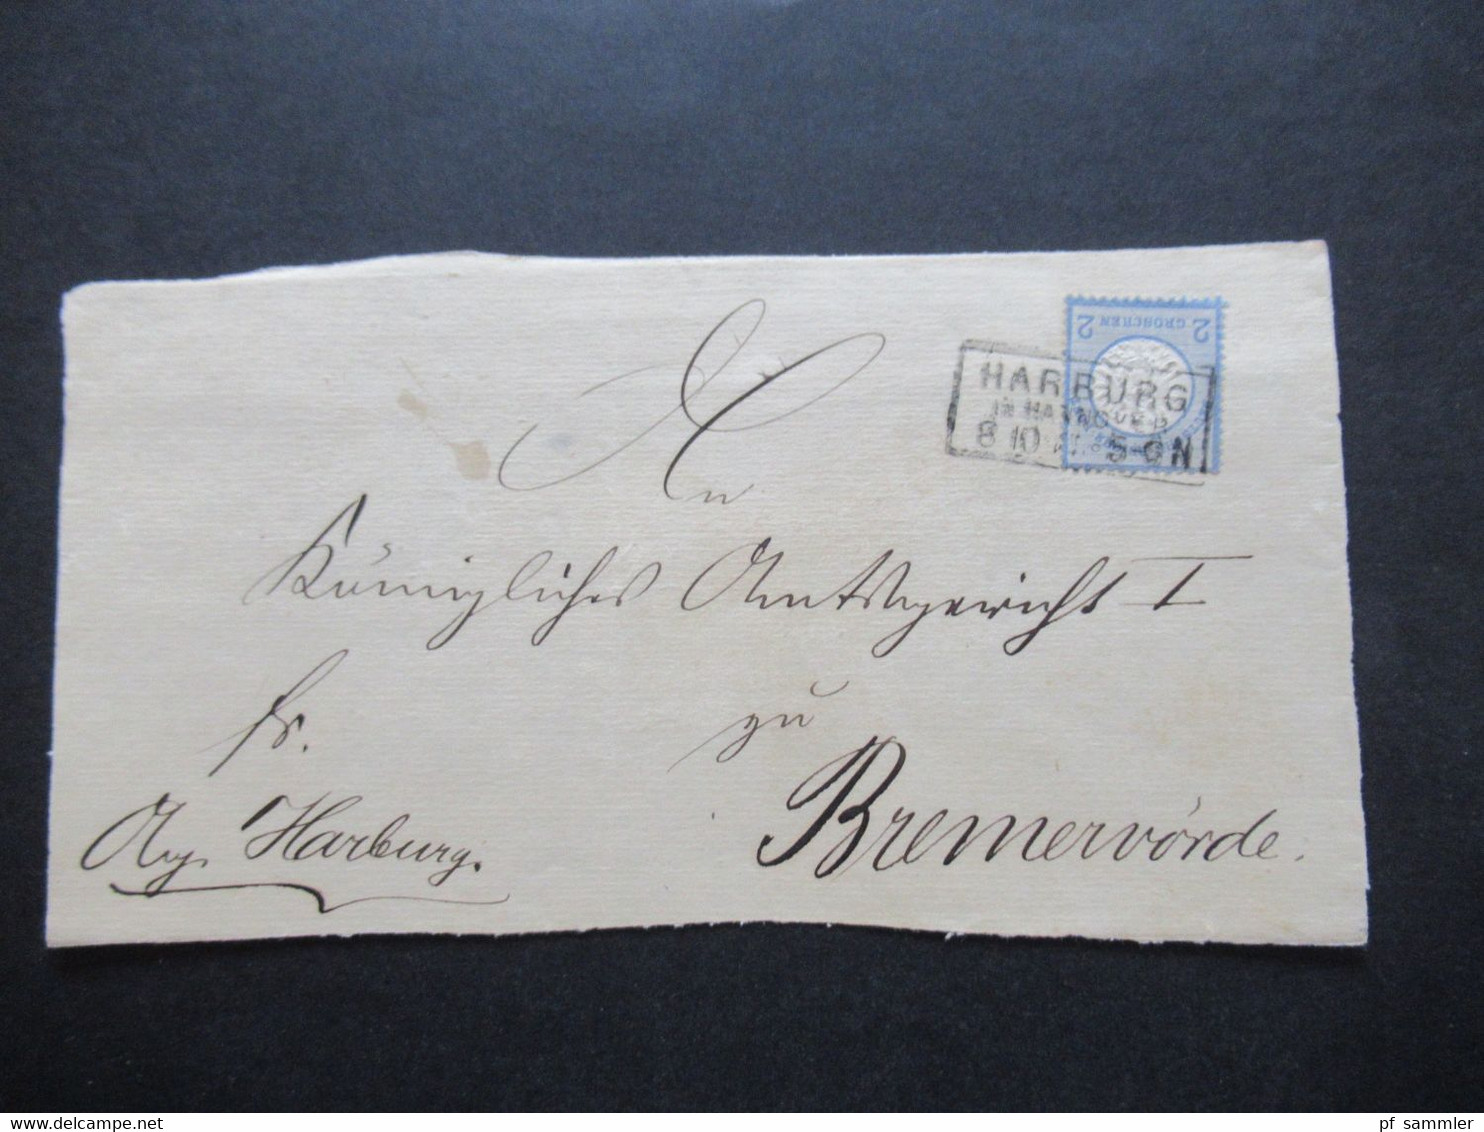 2 GROSCHEN 2
HARBURG
IN HANNOVER
8 10 5-6 N
An
Königliches Amtsgericht I
fr. zu
Bremervörde.
Harburg.
pf sammler
www.delcampe.net